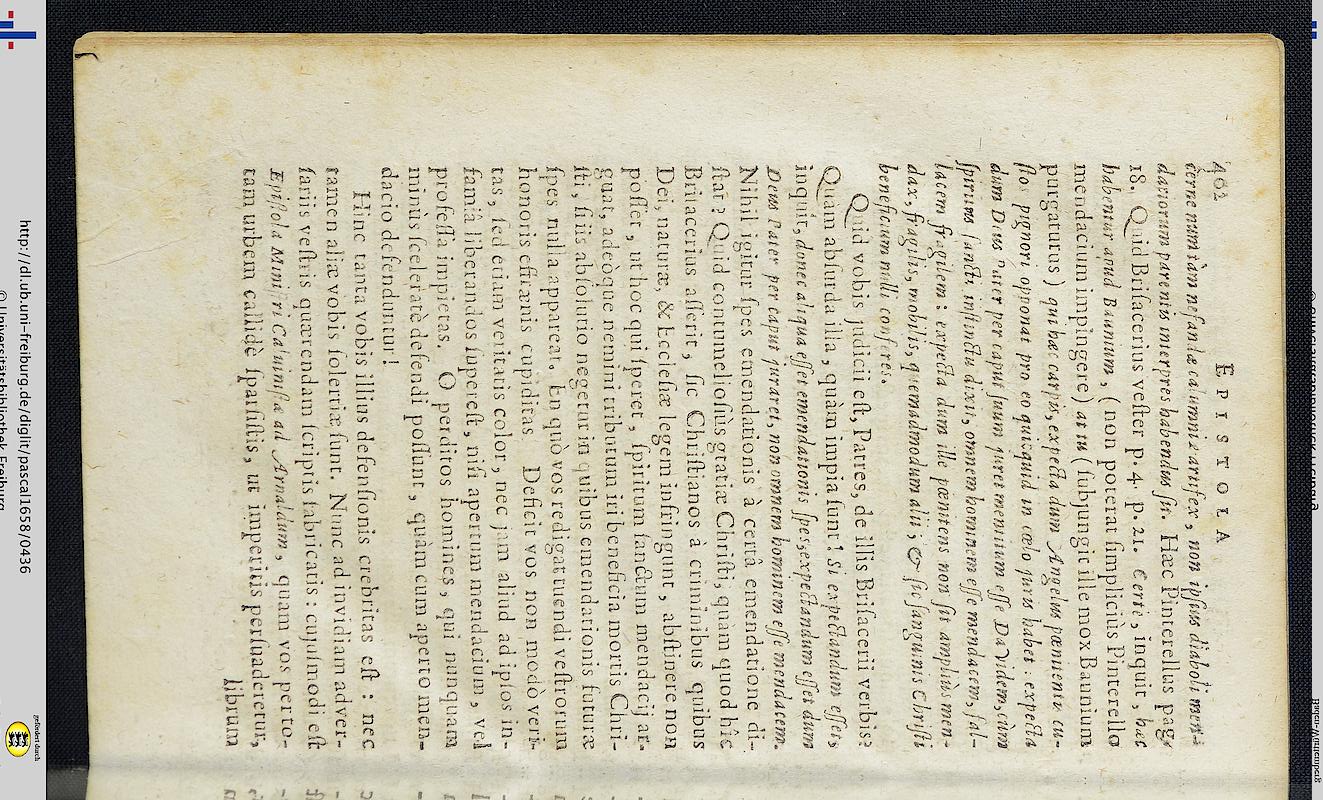 402 EPISTOLA
cerne num tàm nefandæ calumniæ artifex, non ipsius diaboli men-
daciorum parentis interpres habendus sit. Hæc Pinterellus pag.
18. Quid Brisacerius vester p. 4. p. 21. Certè, inquit, hæc
habentur apud Baunium, (non poterat simpliciùs Pinterello
mendacium impingere) at tu (subjungit ille mox Baunium
purgaturus) qui hæc carpis, expecta dum Angelus pœnienti cu-
sto pignori opponat pro eo quicquid in cœlo juris habet: expecta
dum Deus Pater per caput suum juret mentitum esse Davidem, cùm
spiritus sancti instinctu dixit, omnem hominem esse mendacem, fal-
lacem fragilem: expecta dum ille pœnitens non sit ampliùs men-
dax, fragilis, mobilis, quemadmodum alii; & sic sanguinis Christi
beneficium nulli conferet.
Quid vobis judicii est, Patres, de illis Brisacerii verbis?
Quàm absurda illa, quàm impia sunt! Si expectandum esset,
inquit, donec aliqua esset emendationis spes, expectandum esset dum
Deus Pater per caput juraret, non omnem hominem esse mendacem.
Nihil igitur spes emendationis à certâ emendatione di-
stat? Quid contumeliosiùs gratiæ Christi, quàm quod hîc
Brisacerius asserit, sic Christianos à criminibus quibus
Dei, naturæ, & Ecclesiæ legem infringunt, abstinere non
posse, ut hoc qui speret, spiritum sanctum mendacij ar-
guat, adeòque nemini tributum iri beneficia mortis Chri-
sti, si iis absolutio negetur in quibus emendationis futuræ
spes nulla appareat. En quò vos redigat tuendi vestrorum
honoris effrænis cupiditas. Deficit vos non modò veri-
tas, sed etiam veritatis color, nec jam aliud ad ipsos in-
famiâ liberandos superest, nisi apertum mendacium, vel
professa impietas. O perditos homines, qui nunquam
minùs sceleratè defendi possunt, quàm cum aperto men-
dacio defenduntur!
Hinc tanta vobis illius defensionis crebritas est: nec
tamen aliæ vobis solertiæ sunt. Nunc ad invidiam adver-
sariis vestris quærendam scriptis fabricatis: cujusmodi est
Epistola Ministri Calvinista ad Arnaldum, quam vos per to-
tam urbem callidè sparsistis, ut imperitis persuaderetur,
librum
http://dl.ub.uni-freiburg.de/diglit/pascal1658/0436
© Universitätsbibliothek Freiburg
gefördert durch